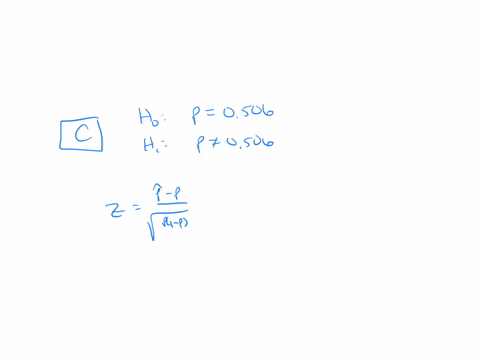 H₀: p = 0.506
C
H₁: p ≠ 0.506
z = p̂ - p / √p(1-p)